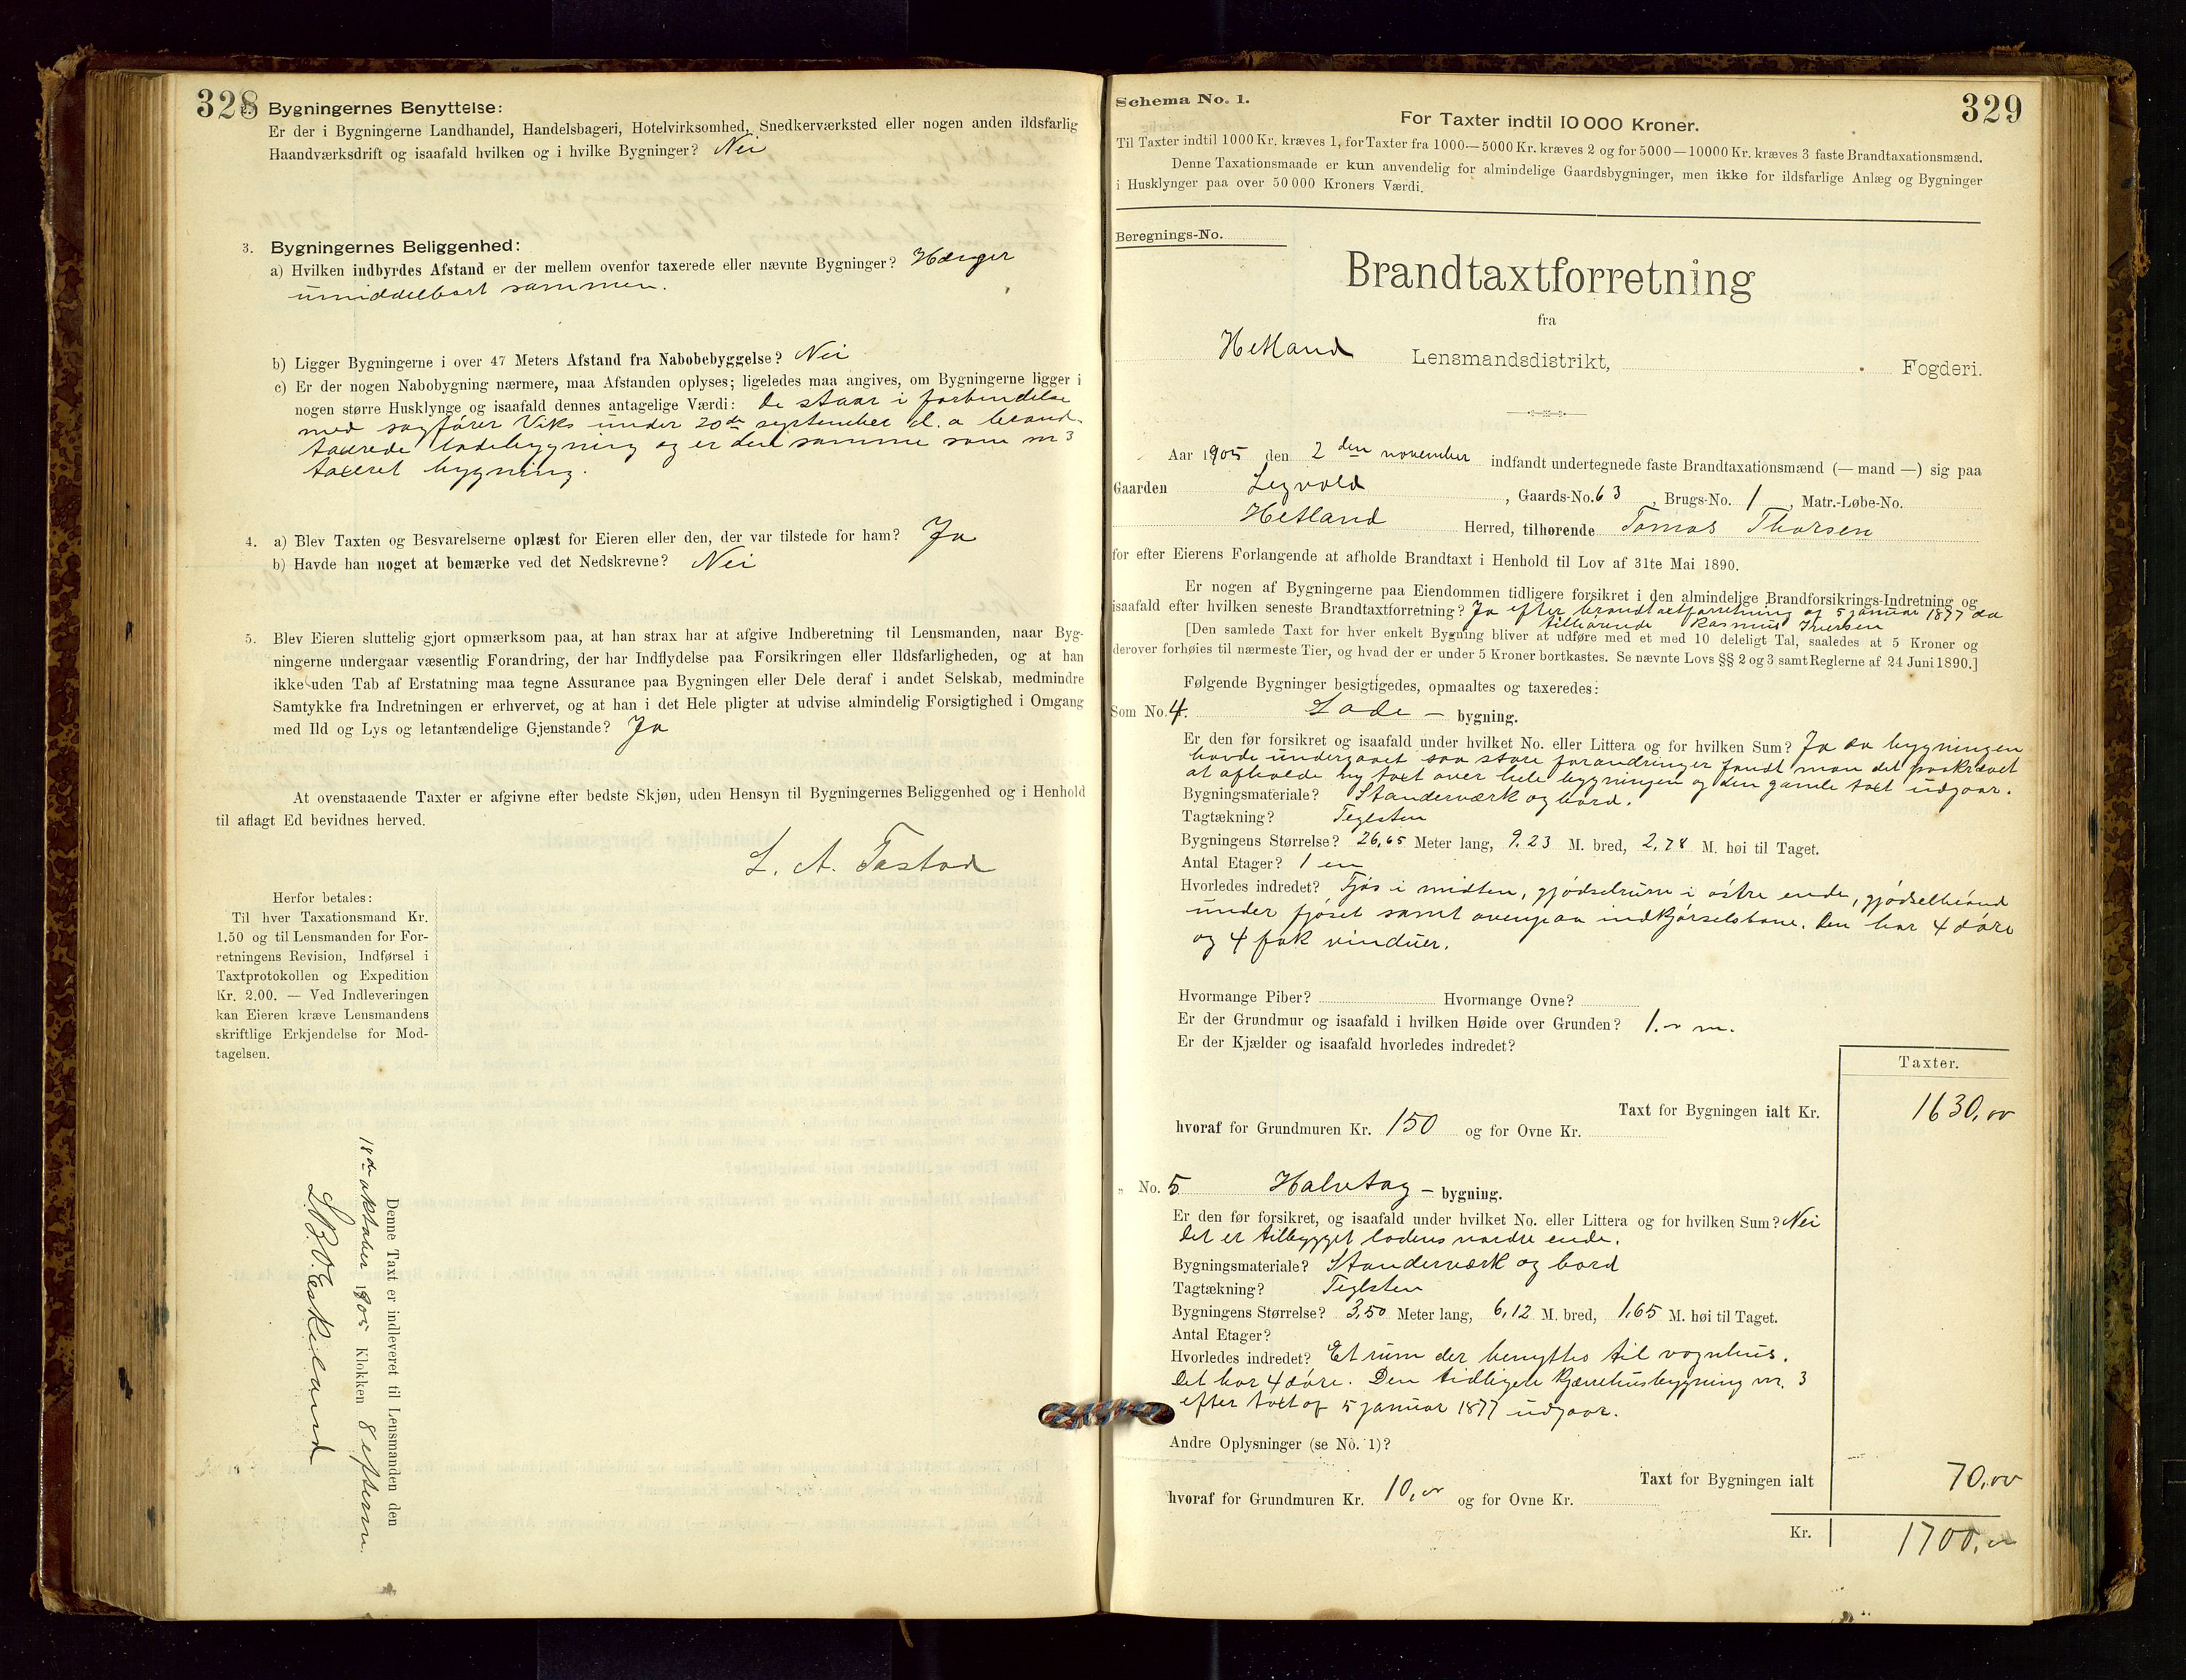 328
Bygningernes Benyttelse:
Er der i Bygningerne Landhandel, Handelsbageri, Hotelvirksomhed, Snedkerværksted eller nogen anden ildsfarlig
Haandværksdrift og isaafald hvilken og i hvilke Bygninger? Nei
3. Bygningernes Beliggenhed:
a) Hvilken indbyrdes Afstand er der mellem ovenfor taxerede eller nævnte Bygninger? Hænger
umiddelbart sammen.
b) Ligger Bygningerne i over 47 Meters Afstand fra Nabobebyggelse? Nei
c) Er der nogen Nabobygning nærmere, maa Afstanden oplyses; ligeledes maa angives, om Bygningerne ligger i
nogen større Husklynge og isaafald dennes antagelige Værdi: De staar i forbindelse
med sagfører Viks under 20de september d. a brand-
taxerede ladebygning og er den samme som nr 3
taxeret bygning.
4. a) Blev Taxten og Besvarelserne oplæst for Eieren eller den, der var tilstede for ham? Ja
b) Havde han noget at bemærke ved det Nedskrevne? Nei
5. Blev Eieren sluttelig gjort opmærksom paa, at han strax har at afgive Indberetning til Lensmanden, naar Byg-
ningerne undergaar væsentlig Forandring, der har Indflydelse paa Forsikringen eller Ildsfarligheden, og at han
ikke uden Tab af Erstatning maa tegne Assurance paa Bygningen eller Dele deraf i andet Selskab, medmindre
Samtykke fra Indretningen er erhvervet, og at han i det Hele pligter at udvise almindelig Forsigtighed i Omgang
med Ild og Lys og letantændelige Gjenstande? Ja
At ovenstaaende Taxter er afgivne efter bedste Skjøn, uden Hensyn til Bygningernes Beliggenhed og i Henhold
til aflagt Ed bevidnes herved.
L. A. Tastad
Herfor betales:
Til hver Taxationsmand Kr.
1.50 og til Lensmanden for For-
retningens Revision, Indførsel i
Taxtprotokollen og Expedition
Kr. 2.00. — Ved Indleveringen
kan Eieren kræve Lensmandens
skriftlige Erkjendelse for Mod-
tagelsen.
Denne Taxt er indleveret til Lensmanden den
18de oktober 1905 Klokken 8 efterm.
L.B.O. Eskeland
329
Schema No. 1.
For Taxter indtil 10 000 Kroner.
Til Taxter indtil 1000 Kr. kræves 1, for Taxter fra 1000—5000 Kr. kræves 2 og for 5000—10000 Kr. kræves 3 faste Brandtaxationsmænd.
Denne Taxationsmaade er kun anvendelig for almindelige Gaardsbygninger, men ikke for ildsfarlige Anlæg og Bygninger
i Husklynger paa over 50 000 Kroners Værdi.
Beregnings-No.
Brandtaxtforretning
fra
Hetland Lensmandsdistrikt, Fogderi.
Aar 1905 den 2den november indfandt undertegnede faste Brandtaxationsmænd (— mand —) sig paa
Gaarden Legvold, Gaards-No. 63, Brugs-No. 1, Matr.-Løbe-No.
Hetland Herred, tilhørende Tomas Thorsen
for efter Eierens Forlangende at afholde Brandtaxt i Henhold til Lov af 31te Mai 1890.
Er nogen af Bygningerne paa Eiendommen tidligere forsikret i den almindelige Brandforsikrings-Indretning og
isaafald efter hvilken seneste Brandtaxtforretning? Ja efter brandtaxtforretning af 5 januar 1877 da
tilhørende Rasmus Iversen
[Den samlede Taxt for hver enkelt Bygning bliver at udføre med et med 10 deleligt Tal, saaledes at 5 Kroner og
derover forhøies til nærmeste Tier, og hvad der er under 5 Kroner bortkastes. Se nævnte Lovs §§ 2 og 3 samt Reglerne af 24 Juni 1890.]
Følgende Bygninger besigtigedes, opmaaltes og taxeredes:
Som No. 4. Lade — bygning.
Er den før forsikret og isaafald under hvilket No. eller Littera og for hvilken Sum? Ja da bygningen
havde undergaaet saa store forandringer fandt man det paakrævet
at afholde ny taxt over hele bygningen og den gamle taxt udgaar.
Bygningsmateriale? Standerværk og bord.
Tagtækning? Teglsten
Bygningens Størrelse? 26,65 Meter lang, 9,23 M. bred, 2,78 M. høi til Taget.
Antal Etager? 1 en
Hvorledes indredet? Fjøs i midten, gjødselrum i østre ende, gjødselbind
under fjøset samt ovenpaa indkjørselsbane. Den har 4 døre
og 4 fak vinduer.
Hvormange Piber? Hvormange Ovne?
Er der Grundmur og isaafald i hvilken Høide over Grunden? 1. m.
Er der Kjælder og isaafald hvorledes indredet?
Taxter.
Taxt for Bygningen ialt Kr. 1630,00
hvoraf for Grundmuren Kr. 150 og for Ovne Kr.
„ No. 5 Halvtag — bygning.
Er den før forsikret, og isaafald under hvilket No. eller Littera og for hvilken Sum? Nei
Det er tilbygget ladens nordre ende.
Bygningsmateriale? Standerværk og bord
Tagtækning? Teglsten
Bygningens Størrelse? 3,50 Meter lang, 6,12 M. bred, 1,65 M. høi til Taget.
Antal Etager?
Hvorledes indredet? Et rum der benyttes til vognhus.
Det har 4 døre. Den tidligere kjærrehusbygning nr. 3
efter taxt af 5 januar 1877 udgaar.
Andre Oplysninger (se No. 1)?
Taxt for Bygningen ialt 70,00
hvoraf for Grundmuren Kr. 10,00 og for Ovne Kr.
Kr. 1700,00